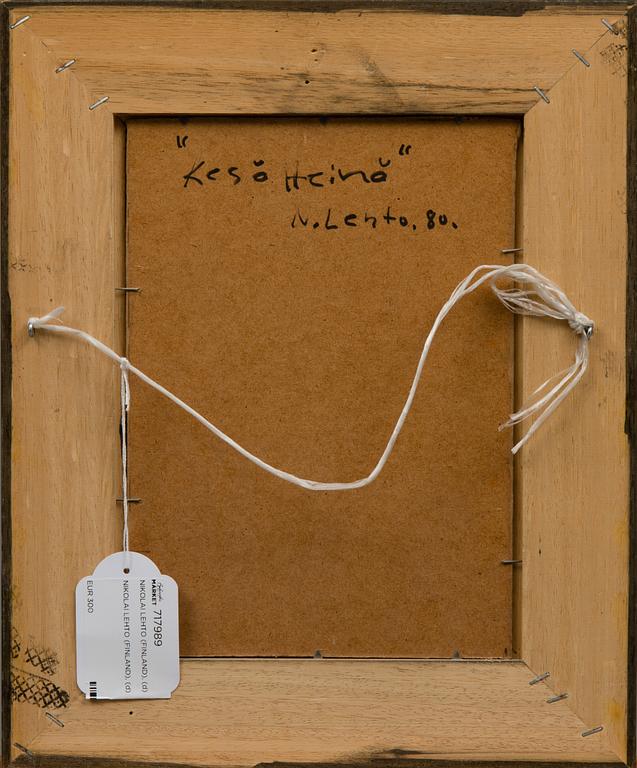 "Kesä Heinä"
N. Lehto. 80.
MARKET 717989
NIKOLAI LEHTO (FINLAND), (d)
NIKOLAI LEHTO (FINLAND), (d)
EUR 300